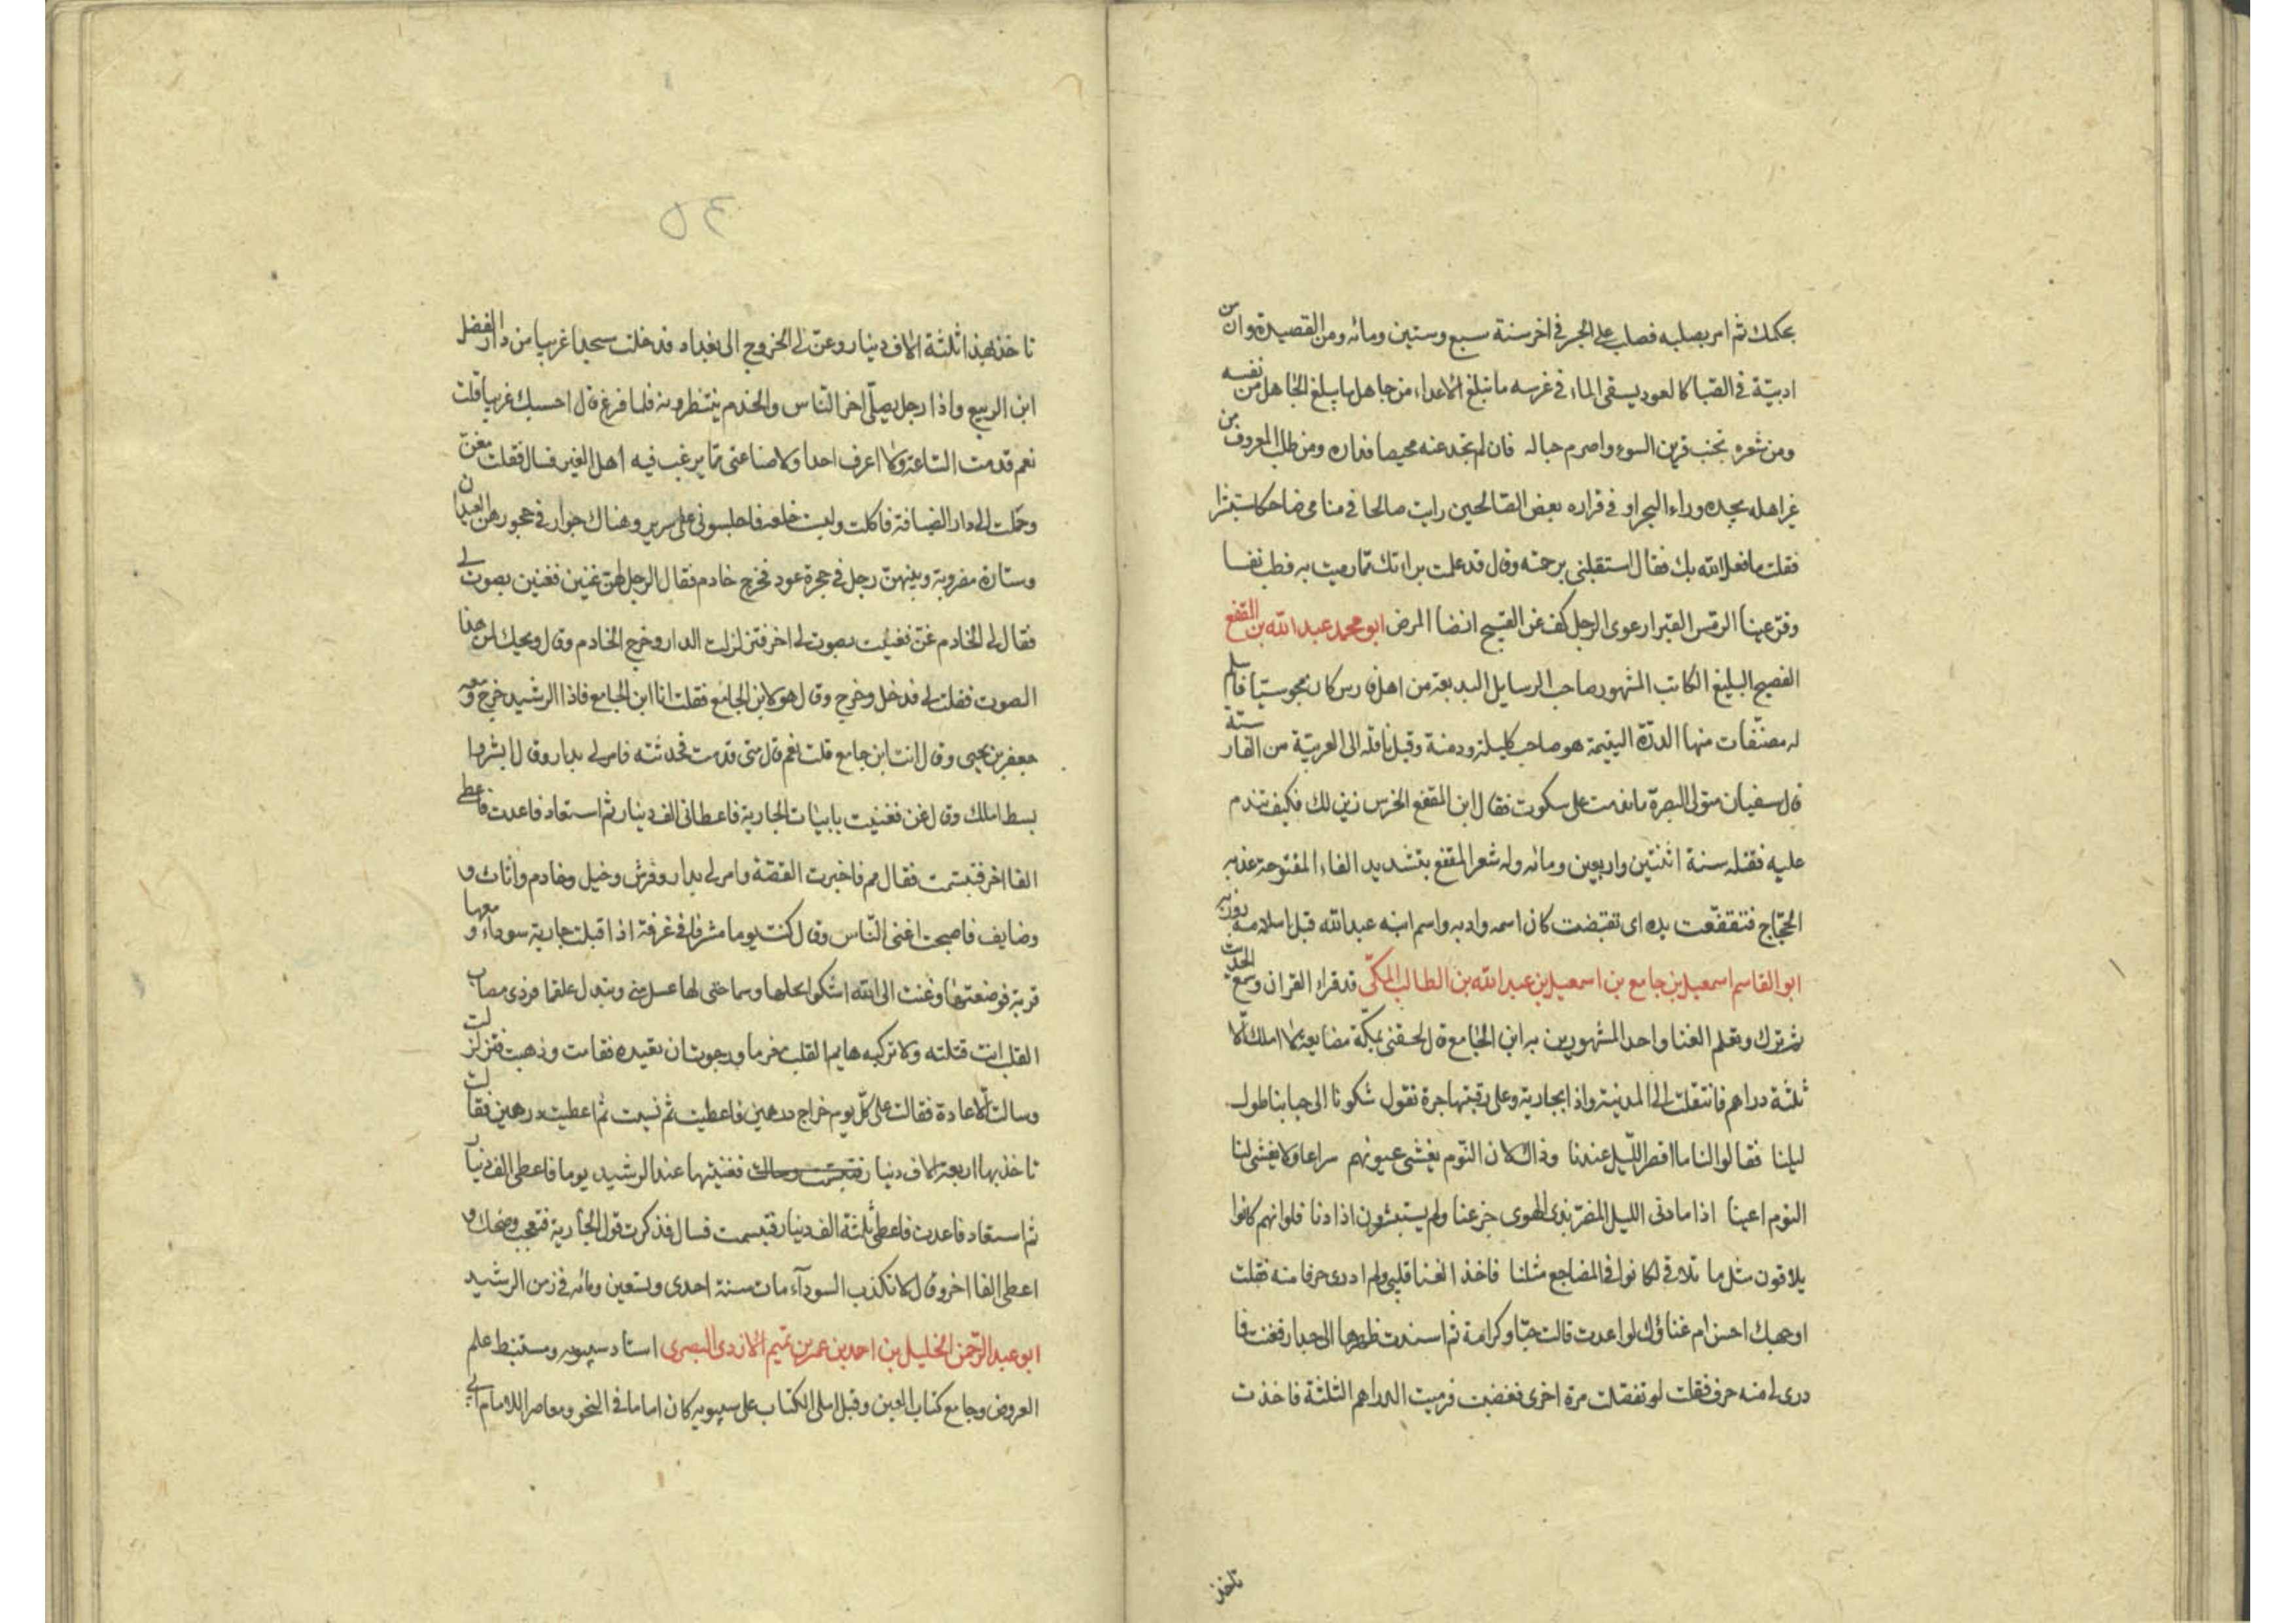 بحكمك ثم امر بصلبه فصلب على الجسر في اخر سنة سبع وستين ومائه ومن القصيدة وان من
ادبته في الصبا كالعود يسقى الماء في غرسه ما تبلغ الاعداء من جاهل ما يبلغ الجاهل من نفسه
ومن شعره تجنب قرين السوء واصرم حباله فان لم تجد عنه محيصا فداره ومن طلب المعروف من
غير اهله يجده وراء البحر او في قراره بعض الصالحين رايت صالحا في منامي ضاحكا مستبشرا
فقلت ما فعل الله بك فقال استقبلني برحمته وقال قد علمت براءتك مما رميت به فطب نفسا
وقر عينا الرمس القبر ارعوى الرجل كف عن القبيح المرض ابو محمد عبد الله بن المقفع
الفصيح البليغ الكاتب المشهور صاحب الرسايل البديعة من اهل فارس كان مجوسيا فاسلم
له مصنفات منها الدرة اليتيمة هو صاحب كليلة ودمنة وقيل ناقله الى العربية من الفارسية
قال سفيان متولى البصرة ما ندمت على سكوت فقال ابن المقفع الخرس زين لك فكيف تندم
عليه فقتله سنة اثنتين واربعين ومائه وله شعر المقفع بتشديد الفاء المفتوحة عذبه
الحجاج فتقفعت يده اى تقبضت كان اسمه دادبه واسم ابنه عبد الله قبل اسلامه روزبه
ابو القاسم اسمعيل بن جامع بن اسمعيل بن عبد الله بن المطلب المكي قد قراء القران وسمع الحديث
ثم ترك وتعلم الغنا واحد المشهورين به ابن الجامع قال لحقني بمكة مضايقة لا املك الا
ثلثة دراهم فانتقلت الى المدينة واذا بجارية وعلى رقبتها جرة تقول شكونا الى احبابنا طول
ليلنا فقالوا لنا ما اقصر الليل عندنا وذاك لان النوم يغشى عيونهم سراعا ولا يغشى لنا
النوم اعينا اذا ما دنى الليل المضر بذى الهوى جزعنا ولم يستبشرون اذا دنا فلو انهم كانوا
يلاقون مثل ما نلاقي لكانوا في المضاجع مثلنا فاخذ الغنا قلبي ولم ادر حرفا منه فقلت
اوجهك احسن ام غناؤك لو اعدت قالت حبا وكرامة ثم اسندت ظهرها الى جدار فغنت فما
درى لي منه حرف فقلت لو تفضلت مرة اخرى فغضبت فرميت الدراهم الثلثة فاخذت
تاخذ
٥٤
تاخذ بهذا ثلثة الاف دينار وعن لي الخروج الى بغداد فدخلت مسجدا غريبا من دار الفضل
ابن الربيع واذا رجل يصلي اخر الناس والخدم ينتظرونه فلما فرغ قال احسبك غريبا قلت
نعم قدمت الساعة ولا اعرف احدا ولا صناعتي مما يرغب فيه اهل الخير فسال فقلت مغن
وحملت الى دار الضيافة فاكلت ولبست خلعة فاجلسوني على سرير وهناك جوار في حجورهن العيدان
وستارة مضروبة وبينهن رجل في حجرة عود فخرج خادم فقال الرجل لهن غنين فغنين بصوت لي
فقال لي الخادم غن فغنيت بصوت لي اخر فتزلزلت الدار وخرج الخادم وقال ويحك لمن هذا
الصوت فقلت لي فدخل وخرج وقال هو لابن الجامع فقلت انا ابن الجامع فاذا الرشيد خرج ومعه
جعفر بن يحيى وقال انت ابن جامع قلت نعم قال متى قدمت فحدثته فامر لي بدار وقال ابشر بها
بسط املك وقال غن فغنيت بابيات الجارية فاعطاني الف دينار ثم استعاد فاعدت فاعطى
الفا اخر فتبسمت فقال مم فاخبرت القصة وامر لي بدار وفرش وخيل وخادم واثاث و
وضايف فاصبحت اغنى الناس وقال كنت يوما مشرفا في غرفة اذ اقبلت جارية سوداء ومعها
قربة فوضعتها وغنت الى الله اشكوا بخلها وسماحتي لها عسل مني وتبذل علقما فردى مصاب
القلب انت قتلته ولا تتركيه هايم القلب مغرما ورجوت ان تعيده فقامت وذهبت فنزلت
وسالت الاعادة فقالت على كل يوم خراج درهمين فاعطيت ثم نسيت ثم اعطيت درهمين فقالت
تاخذ بها اربعة الاف دينار فغنيتها عند الرشيد يوما فاعطى الف دينار
ثم استعاد فاعدت فاعطى ثلثة الف دينار فتبسمت فسال فذكرت قول الجارية فتعجب وضحك و
اعطى الفا اخر وقال لا تكذب السودآء مات سنة احدى وتسعين ومائه في زمن الرشيد
ابو عبد الرحمن الخليل بن احمد بن عمر بن تميم الازدى البصرى استاد سيبويه ومستنبط علم
العروض وجامع كتاب العين وقيل املى الكتاب على سيبويه كان اماما في النحو ومعاصر اللامام ابي